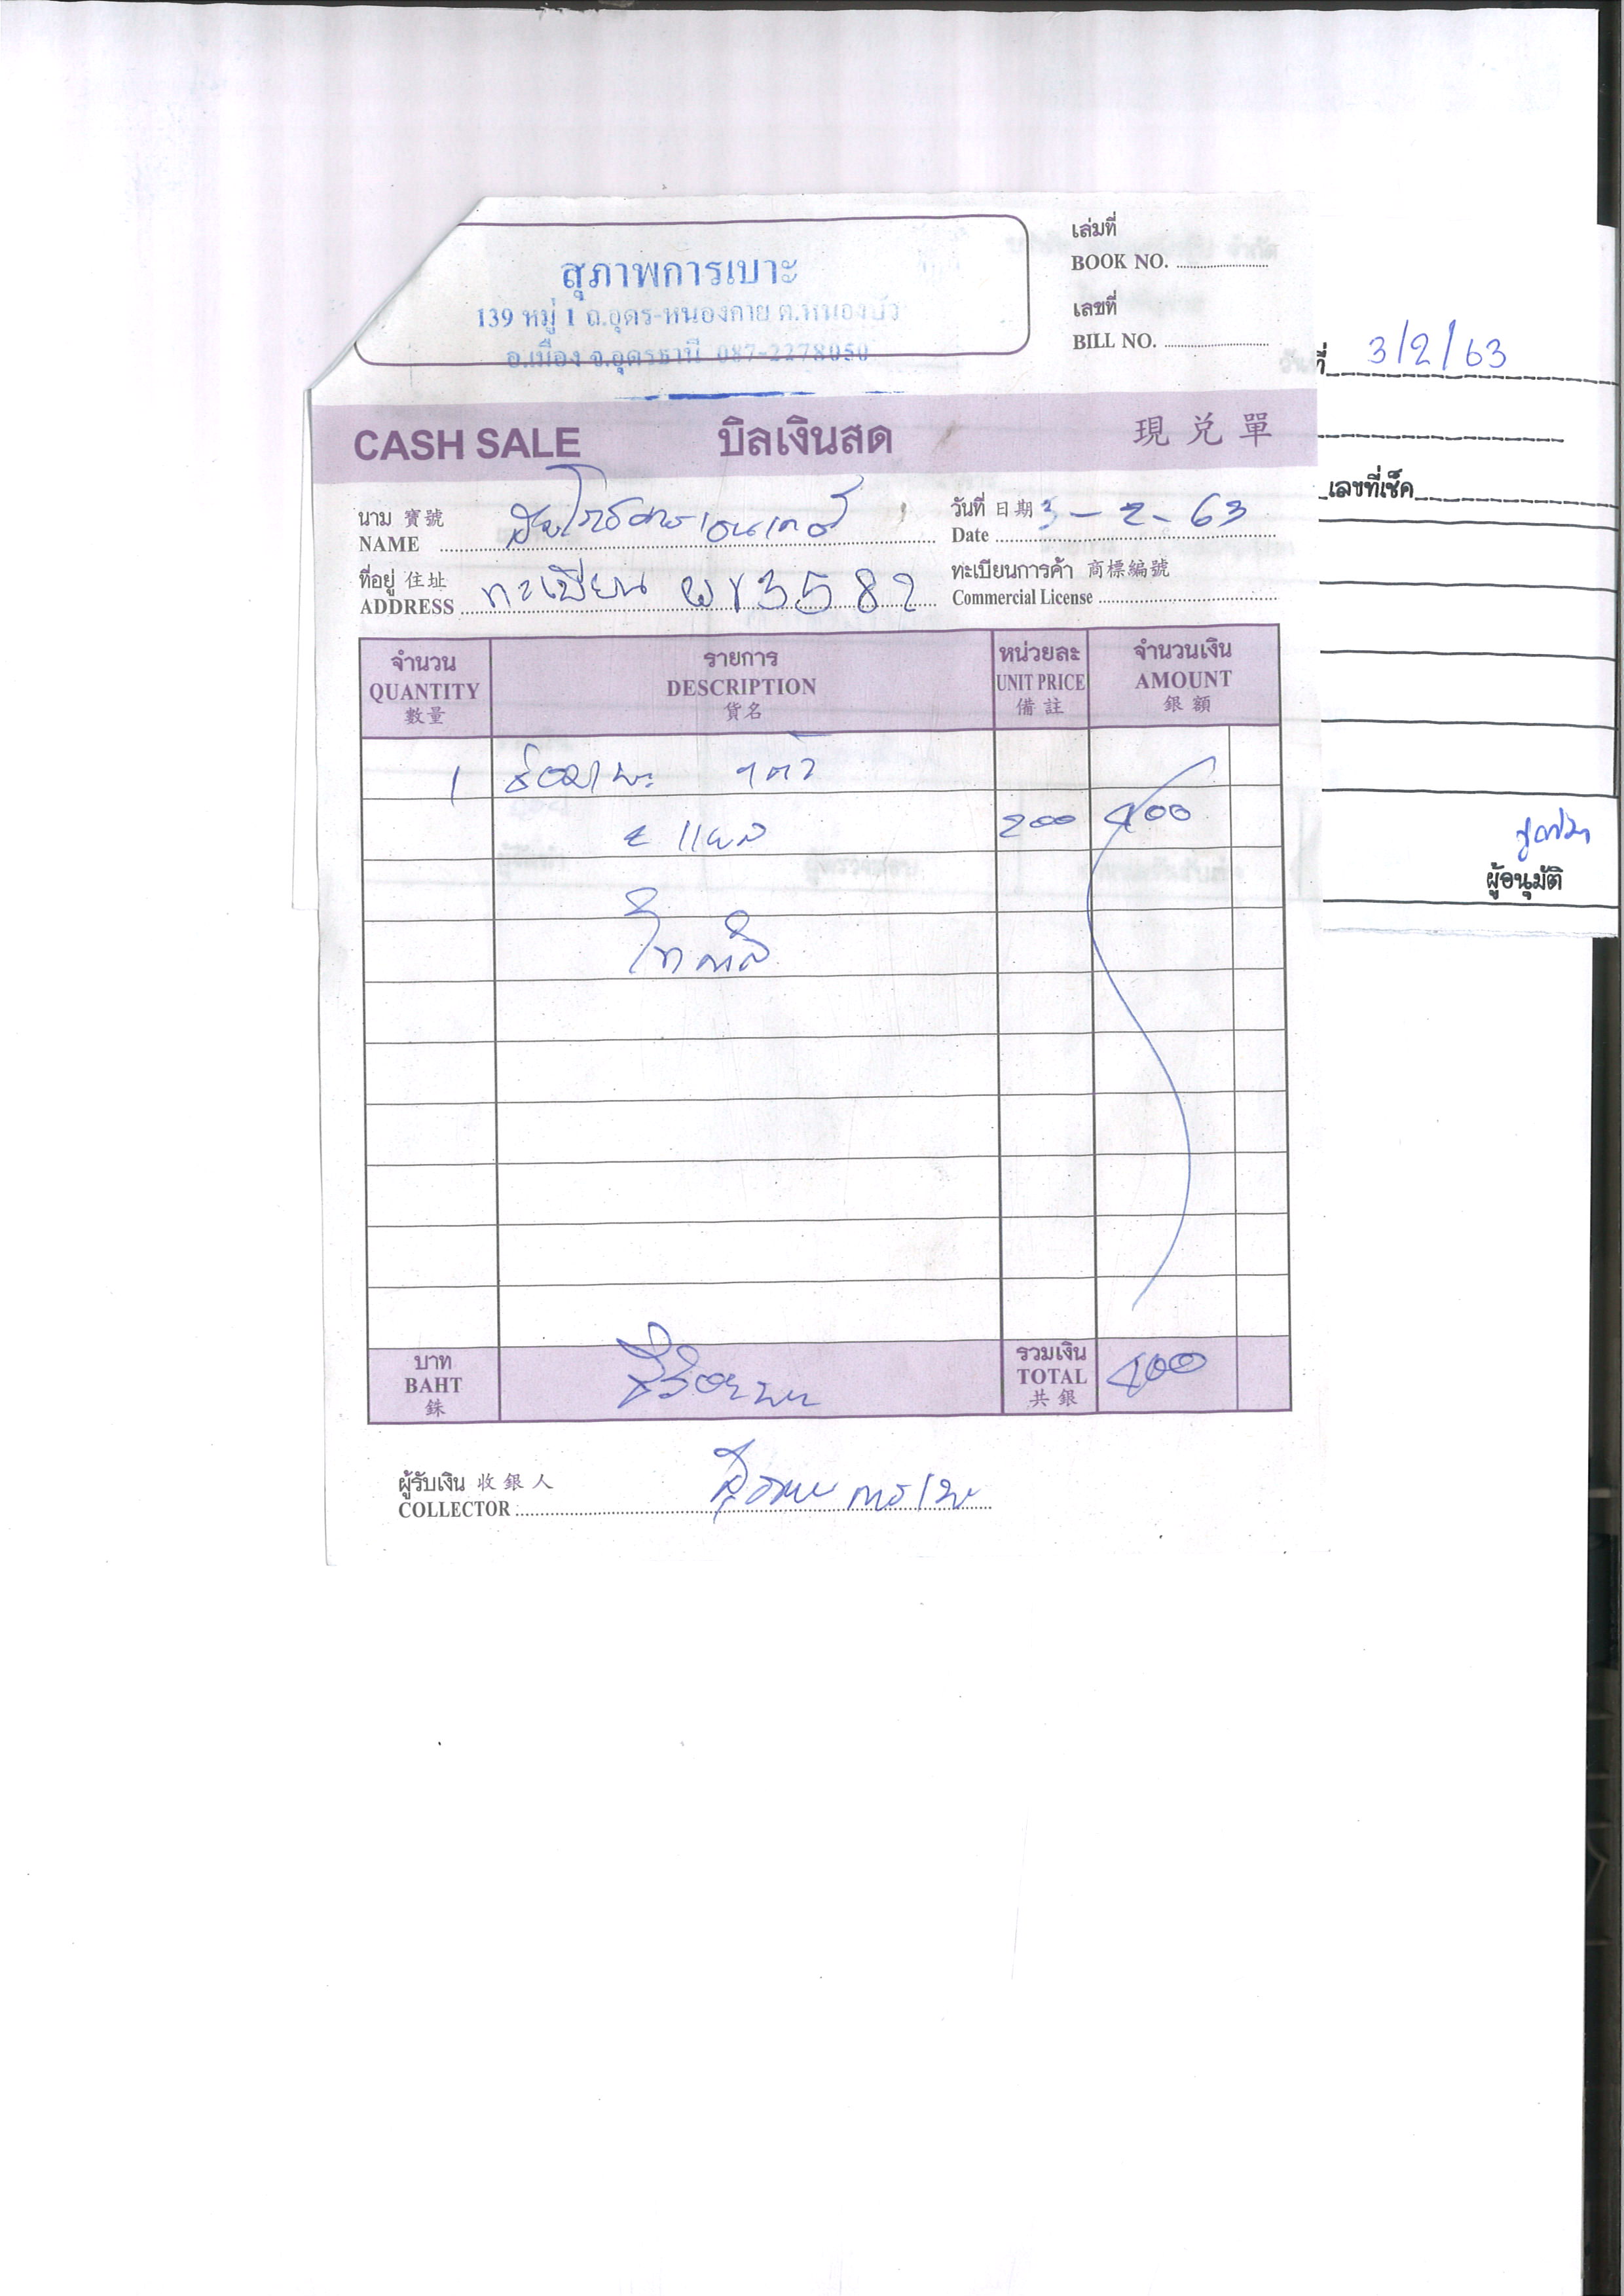 สุภาพการเบาะ
139 หมู่ 1 ถ.อุดร-หนองคาย ต.หนองบัว
อ.เมือง จ.อุดรธานี 087-2278050
เล่มที่
BOOK NO.
เลขที่
BILL NO.
ที่ 3/2/63
CASH SALE บิลเงินสด 現兌單
เลขที่เช็ค
นาม 寶號
NAME
วันที่ 日期 3-2-63
Date
ที่อยู่ 住址
ADDRESS ทะเบียน ผข3582
ทะเบียนการค้า 商標編號
Commercial License
จำนวน รายการ หน่วยละ จำนวนเงิน
QUANTITY DESCRIPTION UNIT PRICE AMOUNT
數量 貨名 備註 銀額
1 ซ่อมเบาะ 1 ตัว
2 แผล 200 400
ผู้อนุมัติ
บาท
BAHT
銖
สี่ร้อยบาท
รวมเงิน
TOTAL 400
共銀
ผู้รับเงิน 收銀人
COLLECTOR สุภาพ การเบาะ